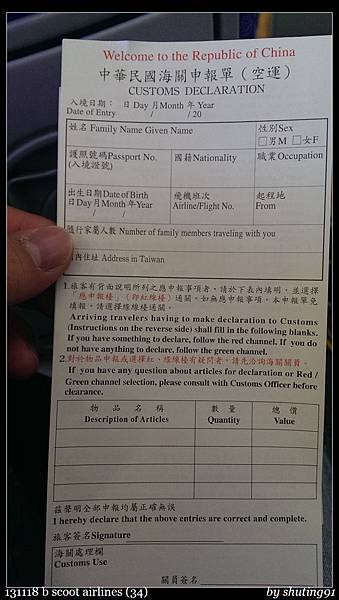 Welcome to the Republic of China
中華民國海關申報單（空運）
CUSTOMS DECLARATION
入境日期： 日 Day 月 Month 年 Year
Date of Entry / / 20
姓名 Family Name Given Name
性別Sex
□男M □女F
護照號碼Passport No.
(入境證號)
國籍Nationality
職業Occupation
出生日期Date of Birth
日Day 月Month 年Year
/ /
飛機班次
Airline/Flight No.
起程地
From
隨行家屬人數 Number of family members traveling with you
內住址 Address in Taiwan
1.旅客有背面說明所列之應申報事項者，請於下表內填明，並選擇
「應申報檯」（即紅線檯）通關。如無應申報事項，本申報單免
填報，請選擇綠線檯通關。
Arriving travelers having to make declaration to Customs
(Instructions on the reverse side) shall fill in the following blanks.
If you have something to declare, follow the red channel. If you do
not have anything to declare, follow the green channel.
2.對於物品申報或選擇紅、綠線檯有疑問者，請先洽詢海關關員。
If you have any question about articles for declaration or Red /
Green channel selection, please consult with Customs Officer before
clearance.
物 品 名 稱 數 量 總 價
Description of Articles Quantity Value
茲聲明全部申報均屬正確無誤
I hereby declare that the above entries are correct and complete.
旅客簽名Signature
海關處理欄
Customs Use
關員簽名
131118 b scoot airlines (34) by shuting91